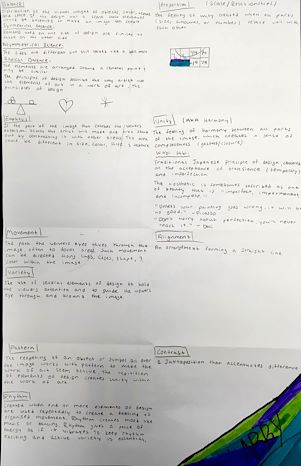 Balance
Distribution of the visual weight of objects, color, texture
and space. If the design was a scale, these elements
would be balanced to make a design feel stable.
Symmetrical Balance.
Elements used on one side of design are similar to
those on the other side
Asymmetrical Balance.
The sides are different but still looks like a balance
Radial Balance.
The elements are arranged around a central point &
may be similar
The principles of design describe the ways artists use
the elements of art in a work of art, the
principles of design
Emphasis
Is the part of the image that catches the viewer's
attention. Usually the artist will make one area stand
out by contrasting it with other areas. The area
could be different in size, color, texture
Movement
The path the viewers eyes takes through the
image, often to focal areas. Such movement
can be directed along lines, edges, shape, &
color within the image
Variety
The use of several elements of design to hold
the viewers attention and to guide the viewers
eye through and around the image.
Pattern
The repeating of an object or symbol all over
the image works with pattern to make the
work of art seem active. The repetition
of elements of design creates unity within
the work of art
Rhythm
Created when one or more elements of design
are used repeatedly to create a feeling of
organised movement. Rhythm creates a mood like
music or dancing. To keep rhythm
exciting and active variety is essential.
Proportion (Scale/
The feeling of unity created when all parts
(sizes, amounts, or number) relate well with
each other
Unity (AKA Harmony)
The feeling of harmony between all parts
of the image which creates a sense of
completeness (
Wabi Sabi.
Traditional Japanese principle of design
on the acceptance of transience (temporary)
and imperfection
The aesthetic is sometimes described as one
of beauty that is "imperfect, impermanent
and incomplete"
"Unless your painting goes wrong, it will be
no good." - Picasso
"Don't worry about perfection, you'll never
reach it." - Dali
Alignment
An arrangement forming a straight line
Contrast
A juxtaposition that accentuates difference